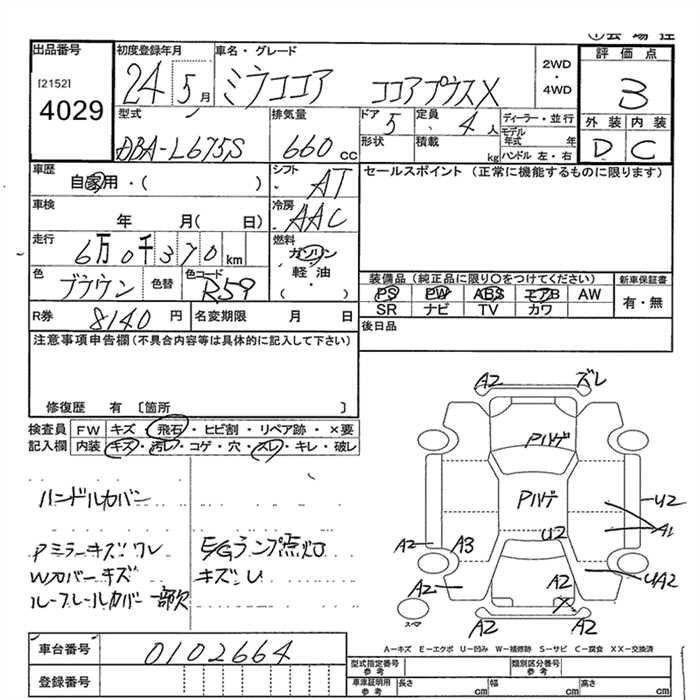 出品番号
[2152]
4029
初度登録年月
24 5月
車名・グレード
ミラココア ココアプラスX
2WD
・
4WD
評価点
3
外装 内装
D C
型式
DBA-L675S
排気量
660 cc
ドア 5
定員 4 人
形状
積載 kg
ディーラー・並行
モデル年式 年
ハンドル 左・右
車歴
自家用・( )
シフト
AT
セールスポイント(正常に機能するものに限ります)
車検
年 月( 日)
冷房
AAC
走行
6万0千370km
燃料
ガソリン
軽・油
( )
色
ブラウン
色替
色コード
R59
装備品(純正品に限り〇をつけてください)
PS PW ABS エアB AW
SR ナビ TV カワ
新車保証書
有・無
R券 8140 円
名変期限 月 日
後日品
注意事項申告欄(不具合内容等は具体的に記入して下さい)
修復歴 有 〔箇所 〕
検査員
記入欄
FW キズ・飛石・ヒビ割・リペア跡・×要
内装 キズ・汚レ・コゲ・穴・スレ・キレ・破レ
ハンドルカバー
Pミラーキズワレ
Wカバーキズ
ルーフレールカバー一部欠
E/Gランプ点灯
キズU
A2 ズレ
Pハゲ
Pハゲ
U2
U2
A1
A2 A3
A2
A2
UA2
X
スペア
A2 A2
A−キズ E−エクボ U−凹み W−補修跡 S−サビ C−腐食 XX−交換済
車台番号
0102664
登録番号
型式指定番号
参考
類別区分番号
参考
車庫証明用
参考
長さ cm
幅 cm
高さ cm